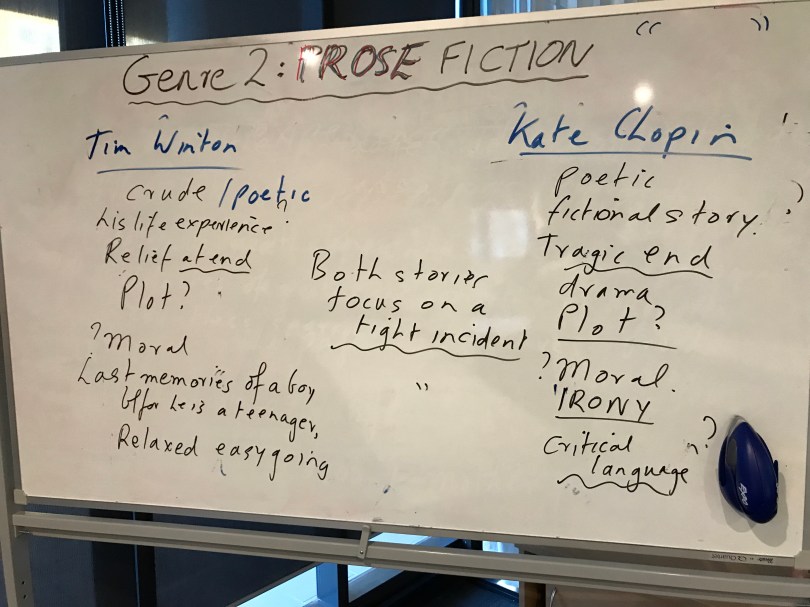 Genre 2: PROSE FICTION
Tim Winton
crude / poetic
his life experience
Relief at end
Plot?
? Moral
Last memories of a boy
bffor he is a teenager,
Relaxed easy going
Both stories
focus on a
tight incident
"
Kate Chopin
poetic
fictional story.
Tragic end
drama
Plot?
? Moral.
IRONY
Critical
language
?